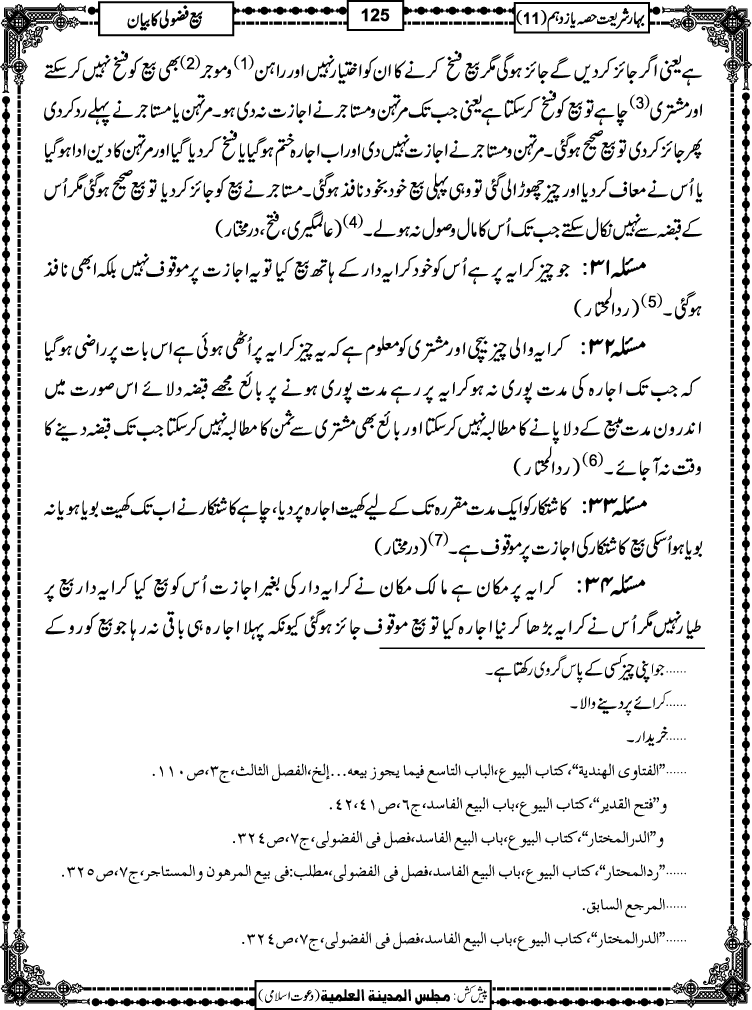 بہار شریعت حصہ یاز دہم (11)
125
بیع فضولی کا بیان
ہے یعنی اگر جائز کردیں گے جائز ہوگی مگر بیع فسخ کرنے کا ان کو اختیار نہیں اور راہن (1) وموجر (2) بھی بیع کو فسخ نہیں کرسکتے
اور مشتری (3) چاہے تو بیع کو فسخ کرسکتا ہے یعنی جب تک مرتہن ومستاجر نے اجازت نہ دی ہو۔ مرتہن یا مستاجر نے پہلے رد کردی
پھر جائز کردی تو بیع صحیح ہوگئی۔ مرتہن ومستاجر نے اجازت نہیں دی اور اب اجارہ ختم ہوگیا یا فسخ کردیا گیا اور مرتہن کا دین ادا ہوگیا
یا اُس نے معاف کردیا اور چیز چھوڑالی گئی تو وہی پہلی بیع خود بخود نافذ ہوگئی۔ مستاجر نے بیع کو جائز کردیا تو بیع صحیح ہوگئی مگر اُس
کے قبضہ سے نہیں نکال سکتے جب تک اُس کا مال وصول نہ ہولے۔ (4) (عالمگیری، فتح، درمختار)
مسئلہ ۳۱: جو چیز کرایہ پر ہے اُس کو خود کرایہ دار کے ہاتھ بیع کیا تو یہ اجازت پر موقوف نہیں بلکہ ابھی نافذ
ہوگئی۔ (5) (ردالمحتار)
مسئلہ ۳۲: کرایہ والی چیز بیچی اور مشتری کو معلوم ہے کہ یہ چیز کرایہ پر اُٹھی ہوئی ہے اس بات پر راضی ہوگیا
کہ جب تک اجارہ کی مدت پوری نہ ہو کرایہ پر رہے مدت پوری ہونے پر بائع مجھے قبضہ دلائے اس صورت میں
اندرون مدت مبیع کے دلا پانے کا مطالبہ نہیں کرسکتا اور بائع بھی مشتری سے ثمن کا مطالبہ نہیں کرسکتا جب تک قبضہ دینے کا
وقت نہ آجائے۔ (6) (ردالمحتار)
مسئلہ ۳۳: کاشتکار کو ایک مدت مقررہ تک کے لیے کھیت اجارہ پر دیا، چاہے کاشتکار نے اب تک کھیت بویا ہو یا نہ
بویا ہو اُسکی بیع کاشتکار کی اجازت پر موقوف ہے۔ (7) (درمختار)
مسئلہ ۳۴: کرایہ پر مکان ہے مالک مکان نے کرایہ دار کی بغیر اجازت اُس کو بیع کیا کرایہ دار بیع پر
طیار نہیں مگر اُس نے کرایہ بڑھا کر نیا اجارہ کیا تو بیع موقوف جائز ہوگئی کیونکہ پہلا اجارہ ہی باقی نہ رہا جو بیع کو روکے
......جو اپنی چیز کسی کے پاس گروی رکھتا ہے۔
......کرائے پر دینے والا۔
......خریدار۔
......”الفتاوی الھندیة“،کتاب البیوع،الباب التاسع فیما یجوز بیعه...إلخ،الفصل الثالث،ج۳،ص۱۱۰.
و”فتح القدیر“،کتاب البیوع،باب البیع الفاسد،ج۶،ص۴۲،۴۱.
و”الدرالمختار“،کتاب البیوع،باب البیع الفاسد،فصل فی الفضولی،ج۷،ص۳۲۴.
......”ردالمحتار“،کتاب البیوع،باب البیع الفاسد،فصل فی الفضولی،مطلب:فی بیع المرھون والمستاجر،ج۷،ص۳۲۵.
......المرجع السابق.
......”الدرالمختار“،کتاب البیوع،باب البیع الفاسد،فصل فی الفضولی،ج۷،ص۳۲۴.
پیش کش: مجلس المدینة العلمیة (دعوت اسلامی)